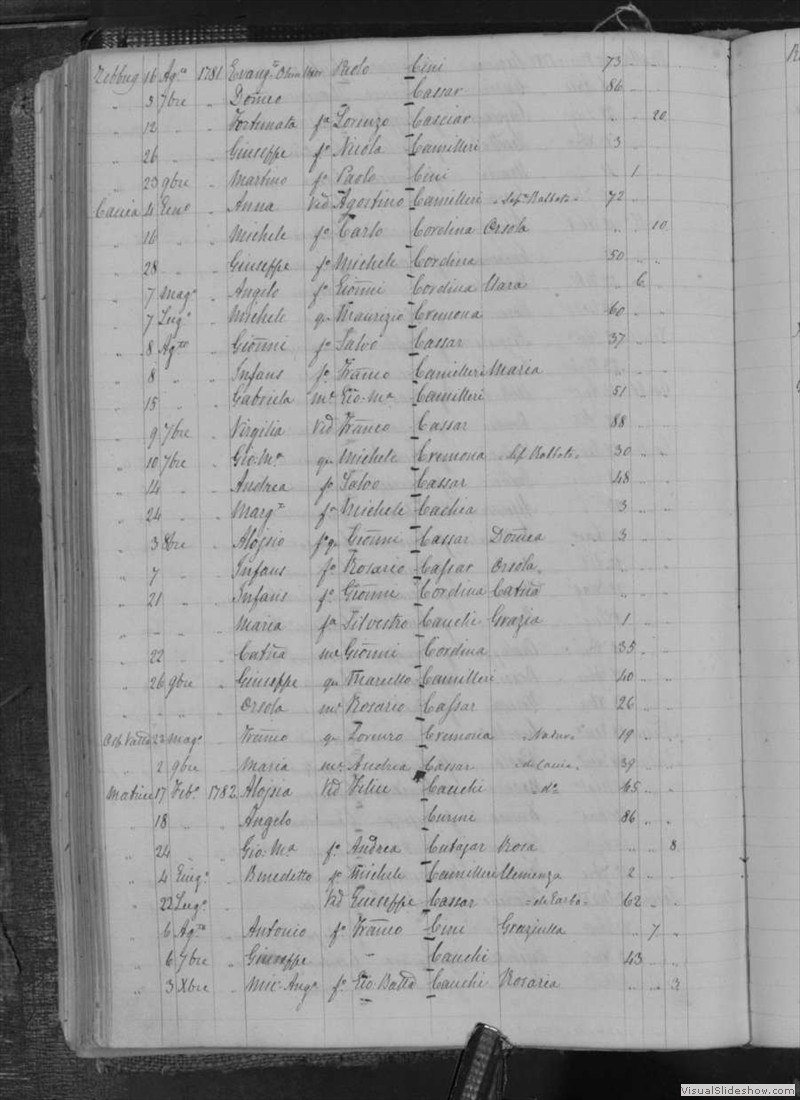 Zebbug 16 Ag.to 1781 Evang.a Paolo Cini 73
" 3 7bre " Domeo Cassar 86
" 12 " " Fortunata f.a Lorenzo Casciar " " 20
" 26 " " Giuseppe f.o Nicola Camilleri 3
" 23 9bre " Martino f.o Paolo Cini " 1
Caccia 4 Gen.o " Anna Vid Agostino Camilleri Sep.a Rabbato 72
" 16 " " Michele f.o Carlo Cordina Orsola " " 10
" 28 " " Giuseppe f.o Michele Cordina 50
" 7 Mag.o " Angelo f.o Gionni Cordina Clara " 6
" 7 Lug.o " Michele q.m Maurizio Cremona 60
" 8 Ag.to " Gionni f.o Salvo Cassar 37
" 8 " " Infans f.o Franco Camilleri Maria
" 15 " " Gabriela m.e Gio: M.a Camilleri 51
" 9 7bre " Virgilia Vid Franco Cassar 88
" 10 7bre " Gio: M.a q.m Michele Cremona Sep. Rabbato 30
" 14 " " Andrea f.o Salvo Cassar 48
" 24 " " Marg.ta f.a Michele Cachia 3
" 3 8bre " Aloisio f.o q.m Gionni Cassar Domca 3
" 7 " " Infans f.o Rosario Cassar Orsola
" 21 " " Infans f.o Gionni Cordina Catna
Maria f.a Silvestro Cauchi Grazia 1
" 22 " " Catna m.e Gionni Cordina 35
" 26 9bre " Giuseppe q.m Marcello Camilleri 40
" " " " Orsola m.e Rosario Cassar 26
22 Mag.o " Franco q.m Lorenzo Cremona Nadur 19
" 2 9bre " Maria m.e Andrea Cassar 39
Matrice 17 Feb.o 1782 Aloisia Vid Cauchi d.a 65
" 18 " " Angelo Curmi 86
" 24 " " Gio: M.a f.o Andrea Cutajar Rosa " " 8
" 4 Giug.o " Benedetto f.o Michele Camilleri Clemenza 2
" 22 Lug.o " Vid Giuseppe Cassar 62
" 6 Ag.to " Antonio f.o Franco Cini Graziulla " 7
" 6 7bre " Giuseppe " Cauchi 43
" 3 Xbre " Mic: Ang.o f.o Gio Batta Cauchi Rosaria " " 3
VisualSlideshow.com